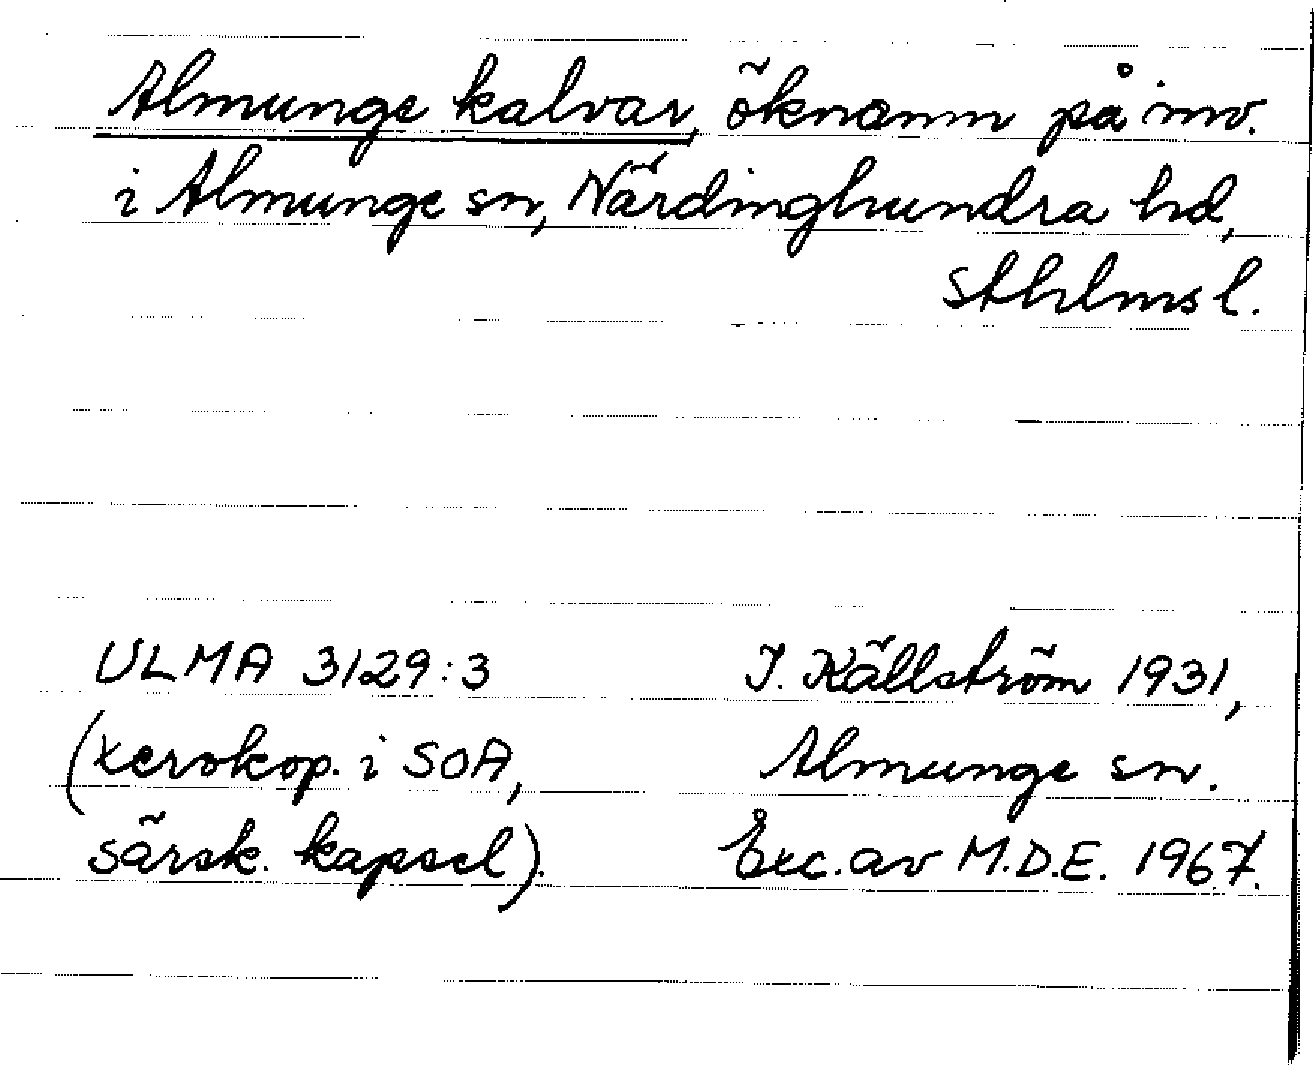 Almunge kalvar, öknamn på inv.
i Almunge sn, Närdinghundra hd,
Sthlms l.
ULMA 3129:3
(xerokop. i SOA,
särsk. kapsel).
J. Källström 1931,
Almunge sn.
Exc. av M.D.E. 1967.